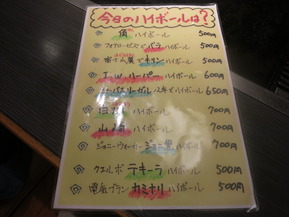 今日のハイボールは?
角 ハイボール 500円
フォアローゼズで バラ ハイボール 500円
ハイボール 500円
I.W.ハーパー ハイボール 600円
シーバスリーガル 12年で ハイボール 650円
白州 ハイボール 700円
山崎 ハイボール 700円
ジョニーウォーカー ハイボール 700円
クエルボ テキーラ ハイボール 500円
電気ブラン カミナリ ハイボール 500円